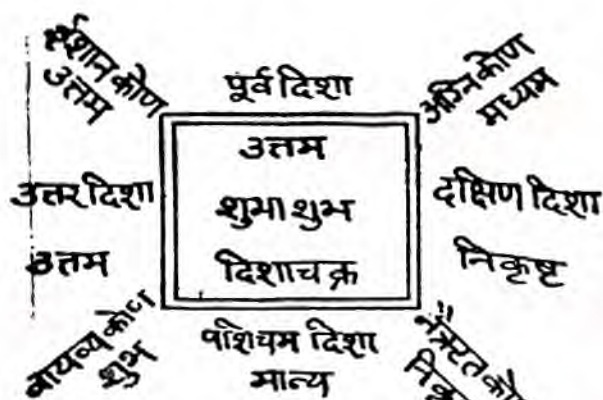 ईशान कोण
उत्तम
पूर्व दिशा
अग्नि कोण
मध्यम
उत्तर दिशा
उत्तम
उत्तम
शुभाशुभ
दिशाचक्र
दक्षिण दिशा
निकृष्ट
वायव्य कोण
शुभ
पश्चिम दिशा
मान्य
नैॠरत